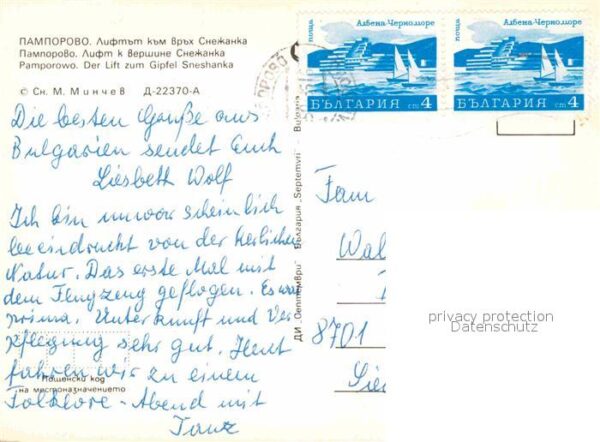 ПАМПОРОВО. Лифтът към връх Снежанка
Пампорово. Лифт к вершине Снежанка
Pamporowo. Der Lift zum Gipfel Sneshanka
© Сн. М. Минчев Д-22370-А
Die besten Grüße aus
Bulgarien sendet Euch
Liesbeth Wolf
Ich bin unwahrscheinlich
beeindruckt von der herlichen
Natur. Das erste Mal mit
dem Flugzeug geflogen. Es war
prima. Unterkunft und Ver
pflegung sehr gut. Heut
fahren wir zu einem
Folklore-Abend mit
Tanz
Пощенски код
на местоназначението
ДИ „Септември" България „Septemvri" -
поща Албена-Черноморе
БЪЛГАРИЯ ст 4
поща Албена-Черноморе
БЪЛГАРИЯ ст 4
Fam
Wal
8701
privacy protection
Datenschutz